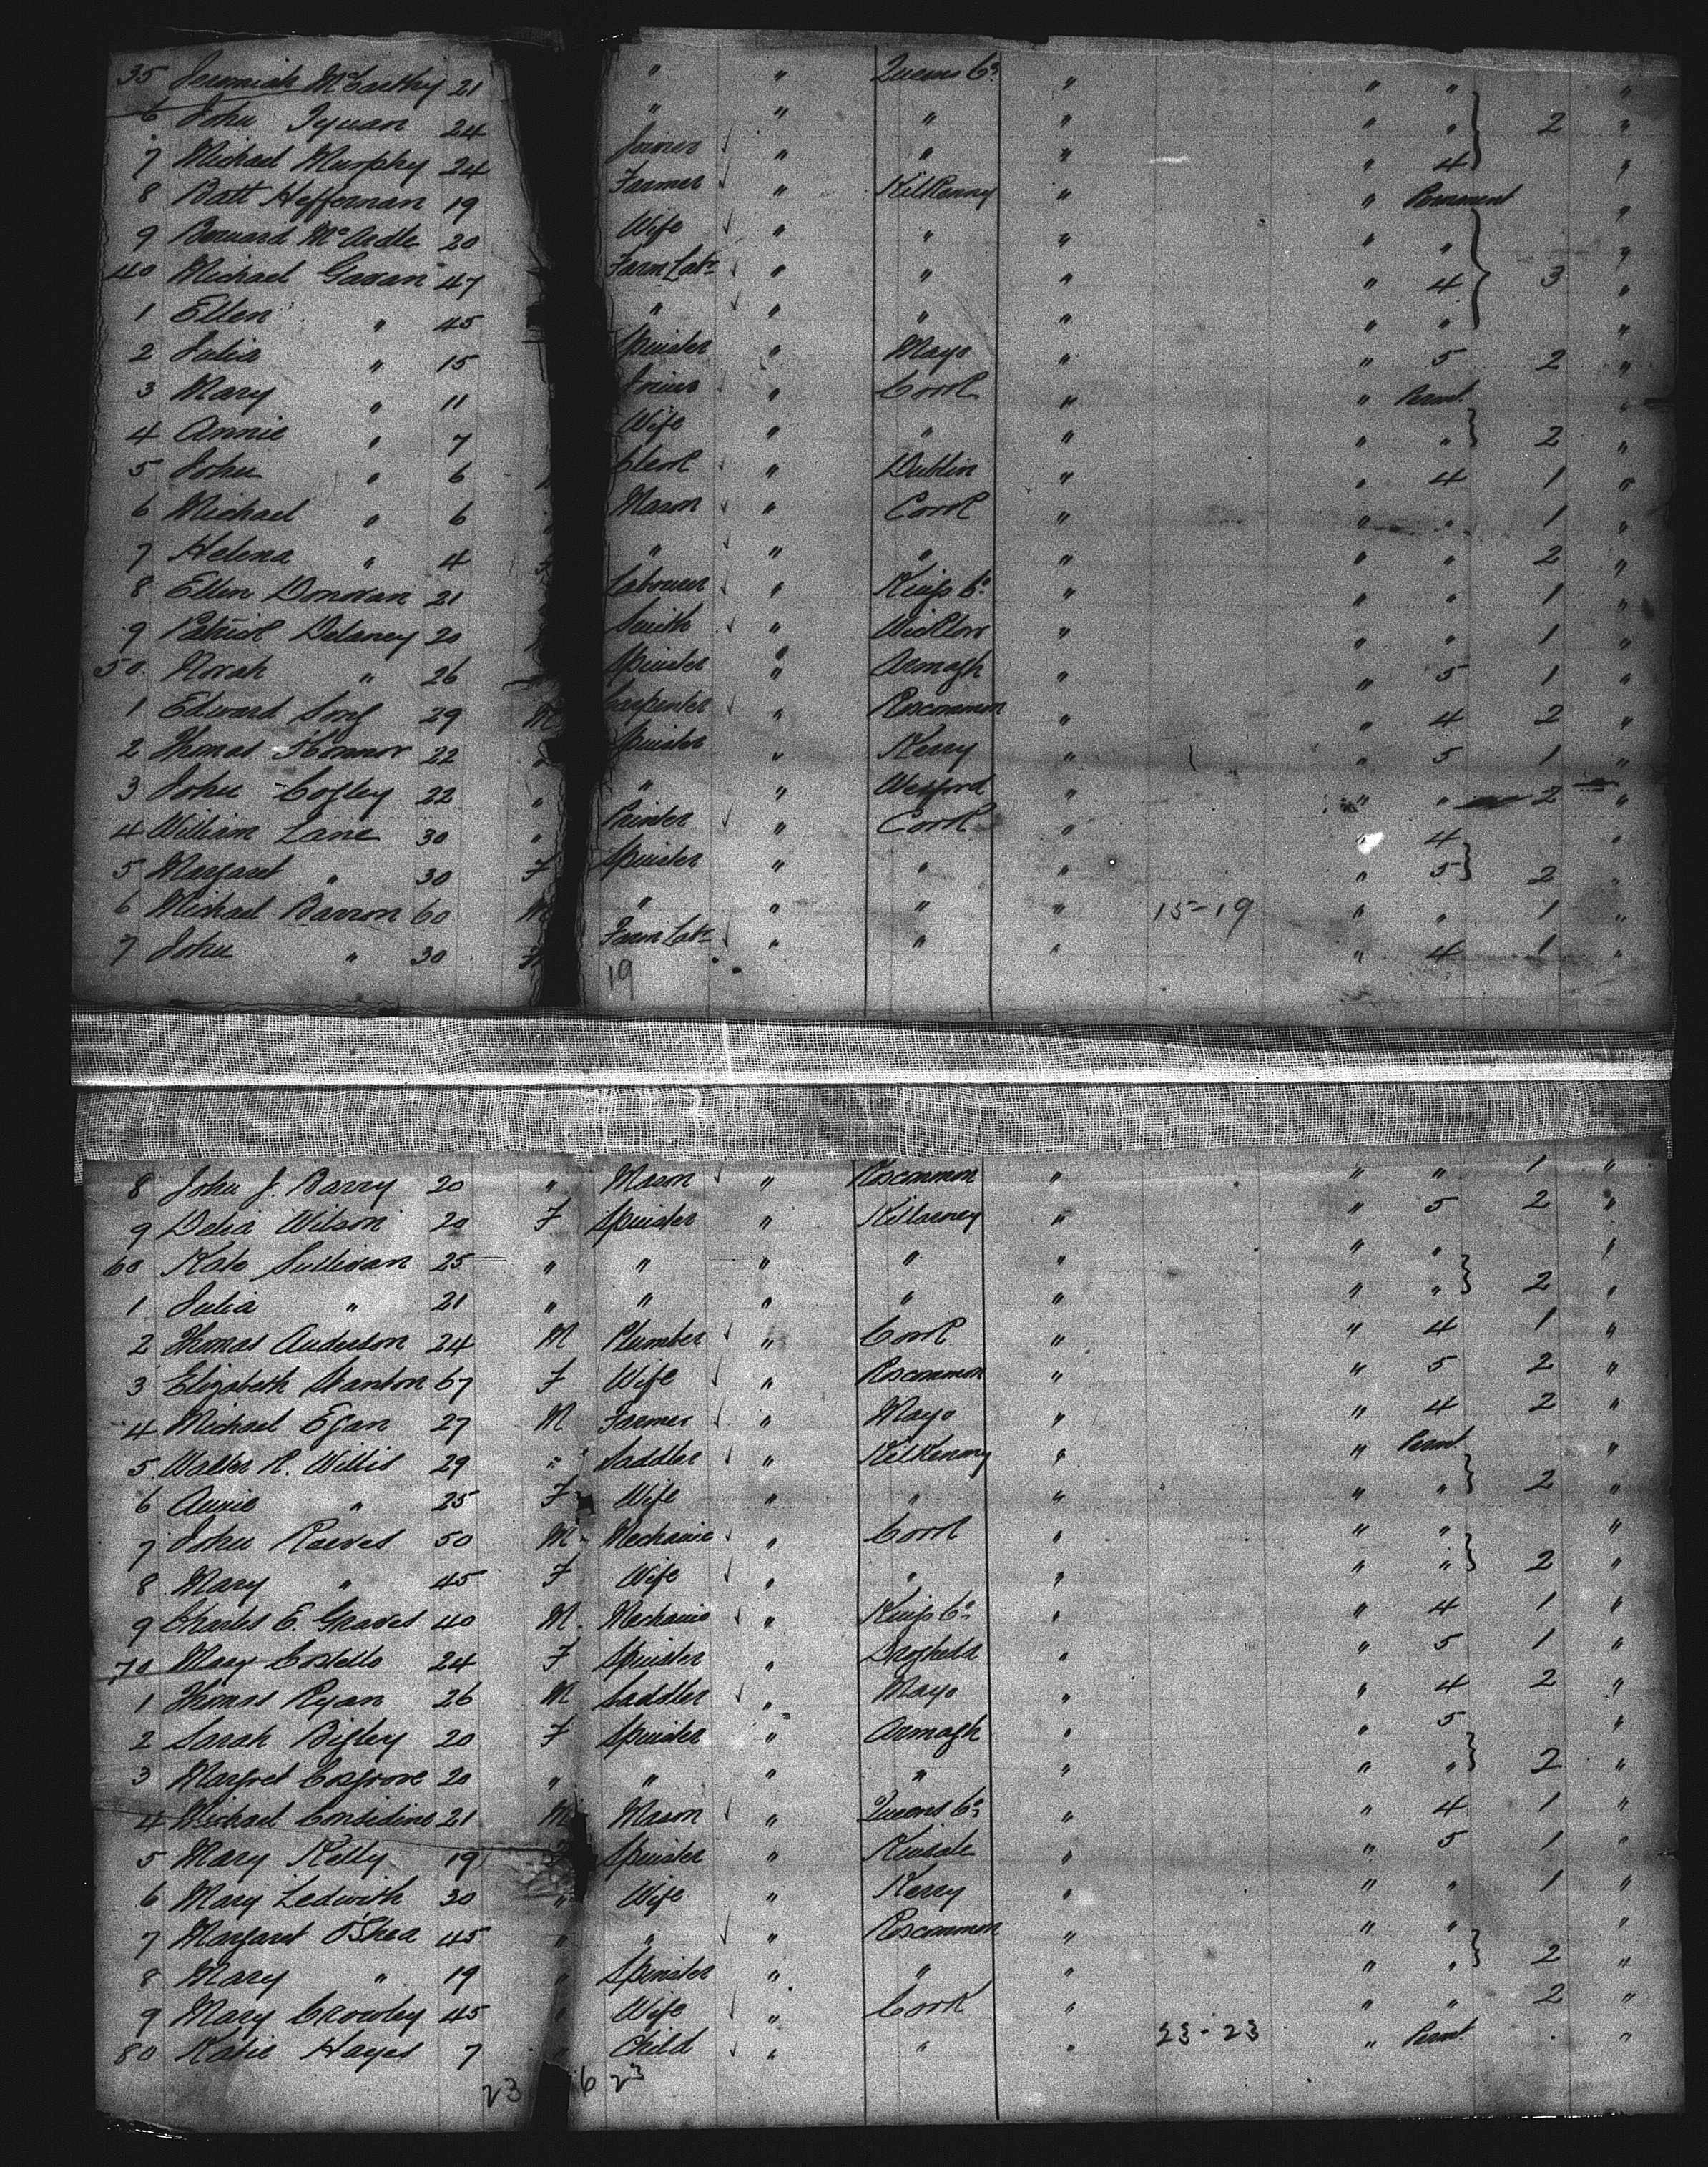 35 Jeremiah McCarthy 21 " " Queens Co. " " " "
6 John Tynan 24 " " " " " " 2 "
7 Michael Murphy 24 Joiner " " " " 4 "
8 Batt Heffernan 19 Farmer " Kilkenny " " Permanent "
9 Bernard McArdle 20 Wife " " " " " "
40 Michael Gavan 47 Farm Labr " " " " 4 3 "
1 Ellen " 45 " " " " " " "
2 Julia " 15 Spinster " Mayo " " 5 2 "
3 Mary " 11 " Cork " " Permt. "
4 Annie " 7 Wife " " " " " 2 "
5 John " 6 Clerk " Dublin " " 4 1 "
6 Michael " 6 " Mason " Cork " " " 1 "
7 Helena " 4 " " " " " " 2 "
8 Ellen Donovan 21 Labourer " Kings Co. " " " 1 "
9 Patrick Delaney 20 Smith " Wicklow " " " 1 "
50 Norah " 26 Spinster " Armagh " " 5 1 "
1 Edward Long 29 M Carpenter " Roscommon " " 4 2 "
2 Thomas O'Connor 22 " Spinster " Kerry " " 5 1 "
3 John Cogley 22 " " " Wexford " " " 2 "
4 William Lane 30 " Painter " Cork " " 4 "
5 Margaret " 30 F Spinster " " " " 5 2 "
6 Michael Barron 60 M " " " " 15-19 " " 1 "
7 John " 30 Farm Labr " " " " 4 1 "
19
8 John J. Barry 20 " Mason " Roscommon " " " 1 "
9 Delia Wilson 20 F Spinster " Killarney " " 5 2 "
60 Kate Sullivan 25 " " " " " " " "
1 Julia " 21 " " " " " " " 2 "
2 Thomas Anderson 24 M Plumber " Cork " " 4 1 "
3 Elizabeth Stanton 67 F Wife " Roscommon " " 5 2 "
4 Michael Egan 27 M Farmer " Mayo " " 4 2 "
5 Walter R. Willis 29 " Saddler " Kilkenny " " Permt. "
6 Annie " 25 F Wife " " " " " 2 "
7 John Reeves 50 M Mechanic " Cork " " " "
8 Mary " 45 F Wife " " " " " 2 "
9 Charles E. Graves 40 M Mechanic " Kings Co. " " 4 1 "
70 Mary Costello 24 F Spinster " Drogheda " " 5 1 "
1 Thomas Ryan 26 M Saddler " Mayo " " 4 2 "
2 Sarah Bigley 20 F Spinster " Armagh " " 5
3 Margret Cosgrove 20 " " " " " " " 2 "
4 Michael Considine 21 M Mason " Queens Co. " " 4 1 "
5 Mary Kelly 19 Spinster " Kinsale " " 5 1 "
6 Mary Ledwith 30 " Wife " Kerry " " " 1 "
7 Margaret O'Shea 45 " " " Roscommon " " " "
8 Mary " 19 " Spinster " " " " " 2 "
9 Mary Crowley 45 " Wife " Cork " " " 2 "
80 Katie Hayes 7 " Child " " " 23-23 " Permt. "
23 6 23